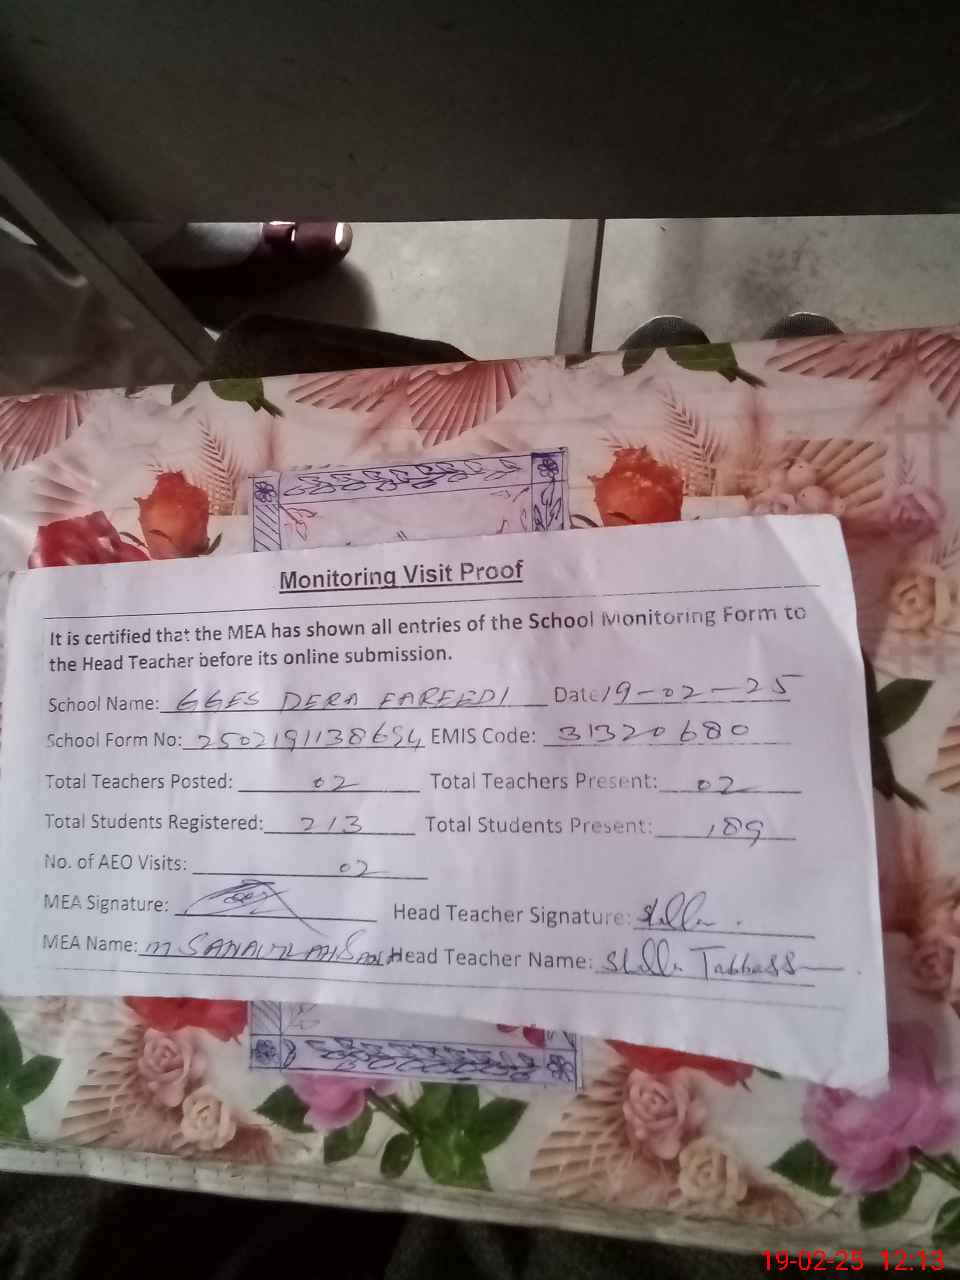 Monitoring Visit Proof
It is certified that the MEA has shown all entries of the School Monitoring Form to
the Head Teacher before its online submission.
School Name: GGES DERA FAREEDI Date 19-02-25
School Form No: 2502191138654 EMIS Code: 31320680
Total Teachers Posted: 02 Total Teachers Present: 02
Total Students Registered: 213 Total Students Present: 189
No. of AEO Visits: 02
MEA Signature: Head Teacher Signature:
MEA Name: M SANAULLAH Head Teacher Name:
19-02-25 12:13